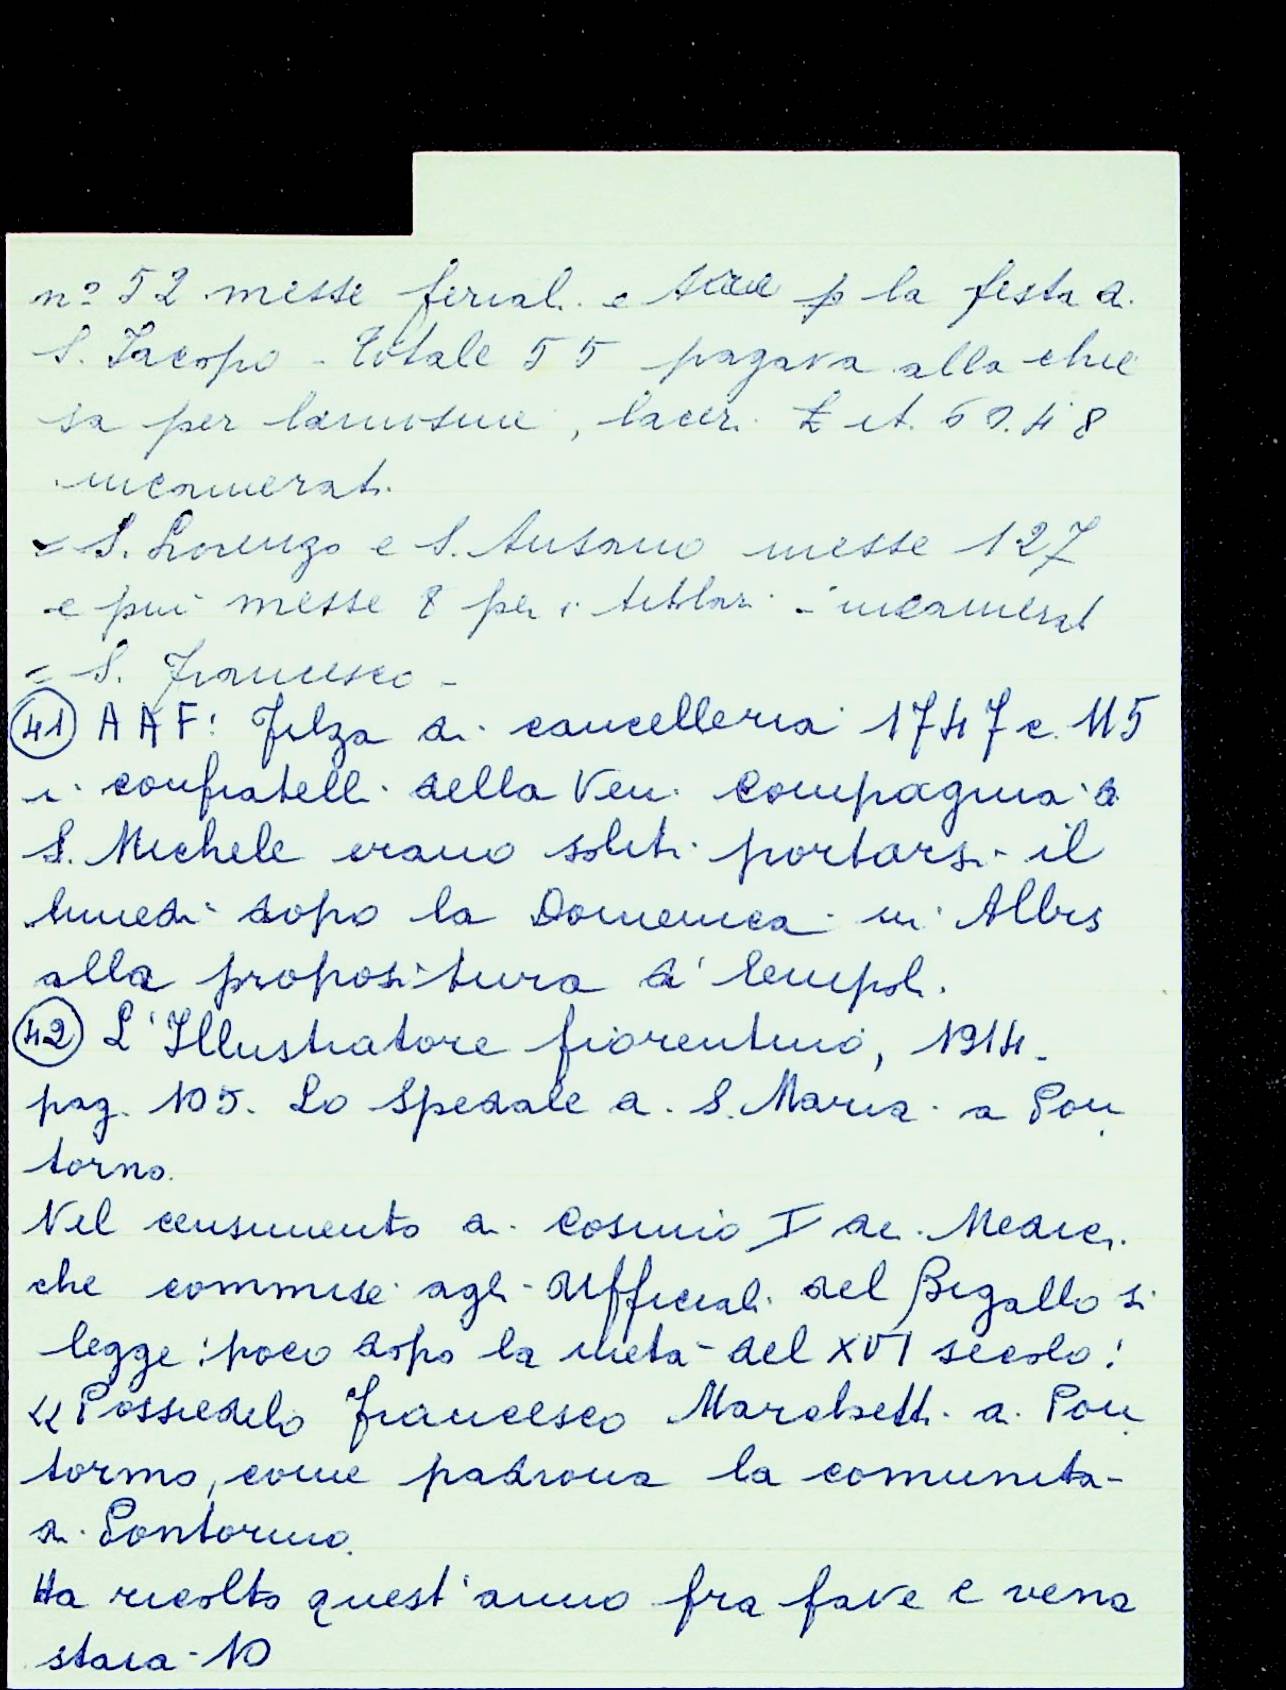 nº 52 messe feriali e tre p la festa di
S. Jacopo - Totale 55 pagava alla chie
sa per lemosine, laceri £ it. 60.48
incamerati.
= S. Lorenzo e S. Ansano messe 127
e più messe 8 per i titolari - incamerati
= S. Francesco -
(41) AAF: Filza di cancelleria 1747 c. 115
i confratelli della Ven. Compagnia di
S. Michele erano soliti portarsi il
lunedì dopo la Domenica in Albis
alla propositura d'Empoli.
(42) L'Illustratore fiorentino, 1914.
pag. 105. Lo Spedale di S. Maria a Pon
torno.
Nel censimento di Cosimo I dei Medici
che commise agli Ufficiali del Bigallo si
legge: poco dopo la metà del XVI secolo:
« Possiedelo Francesco Marchetti di Pon
tormo, come padrona la comunità
di Pontormo.
Ha ricolto quest'anno fra fave e vena
staia - 10